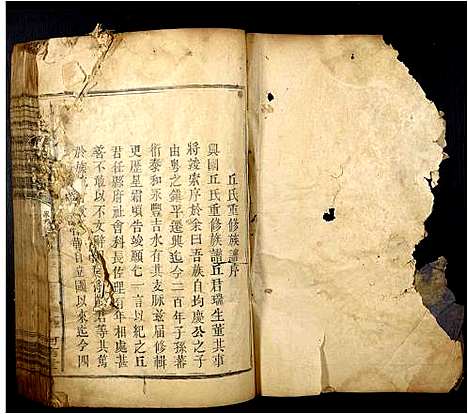 丘氏重修族譜序
興國丘氏重修族譜丘君瑞生董其事
將竣索序於余曰吾族自均慶公之子
由粵之鎮平遷興迄今二百年子孫蕃
衍泰和永豐吉水有其支脈茲屆修輯
更歷星霜頃告竣願乞一言以紀之丘
君任縣府社會科長佐理 年相處甚
篤不敢以不文辭 君等其篤
於族 華自立國以來迄今四